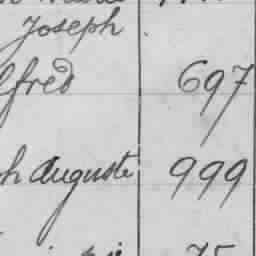 Joseph
lfred 697
h Auguste 999
75